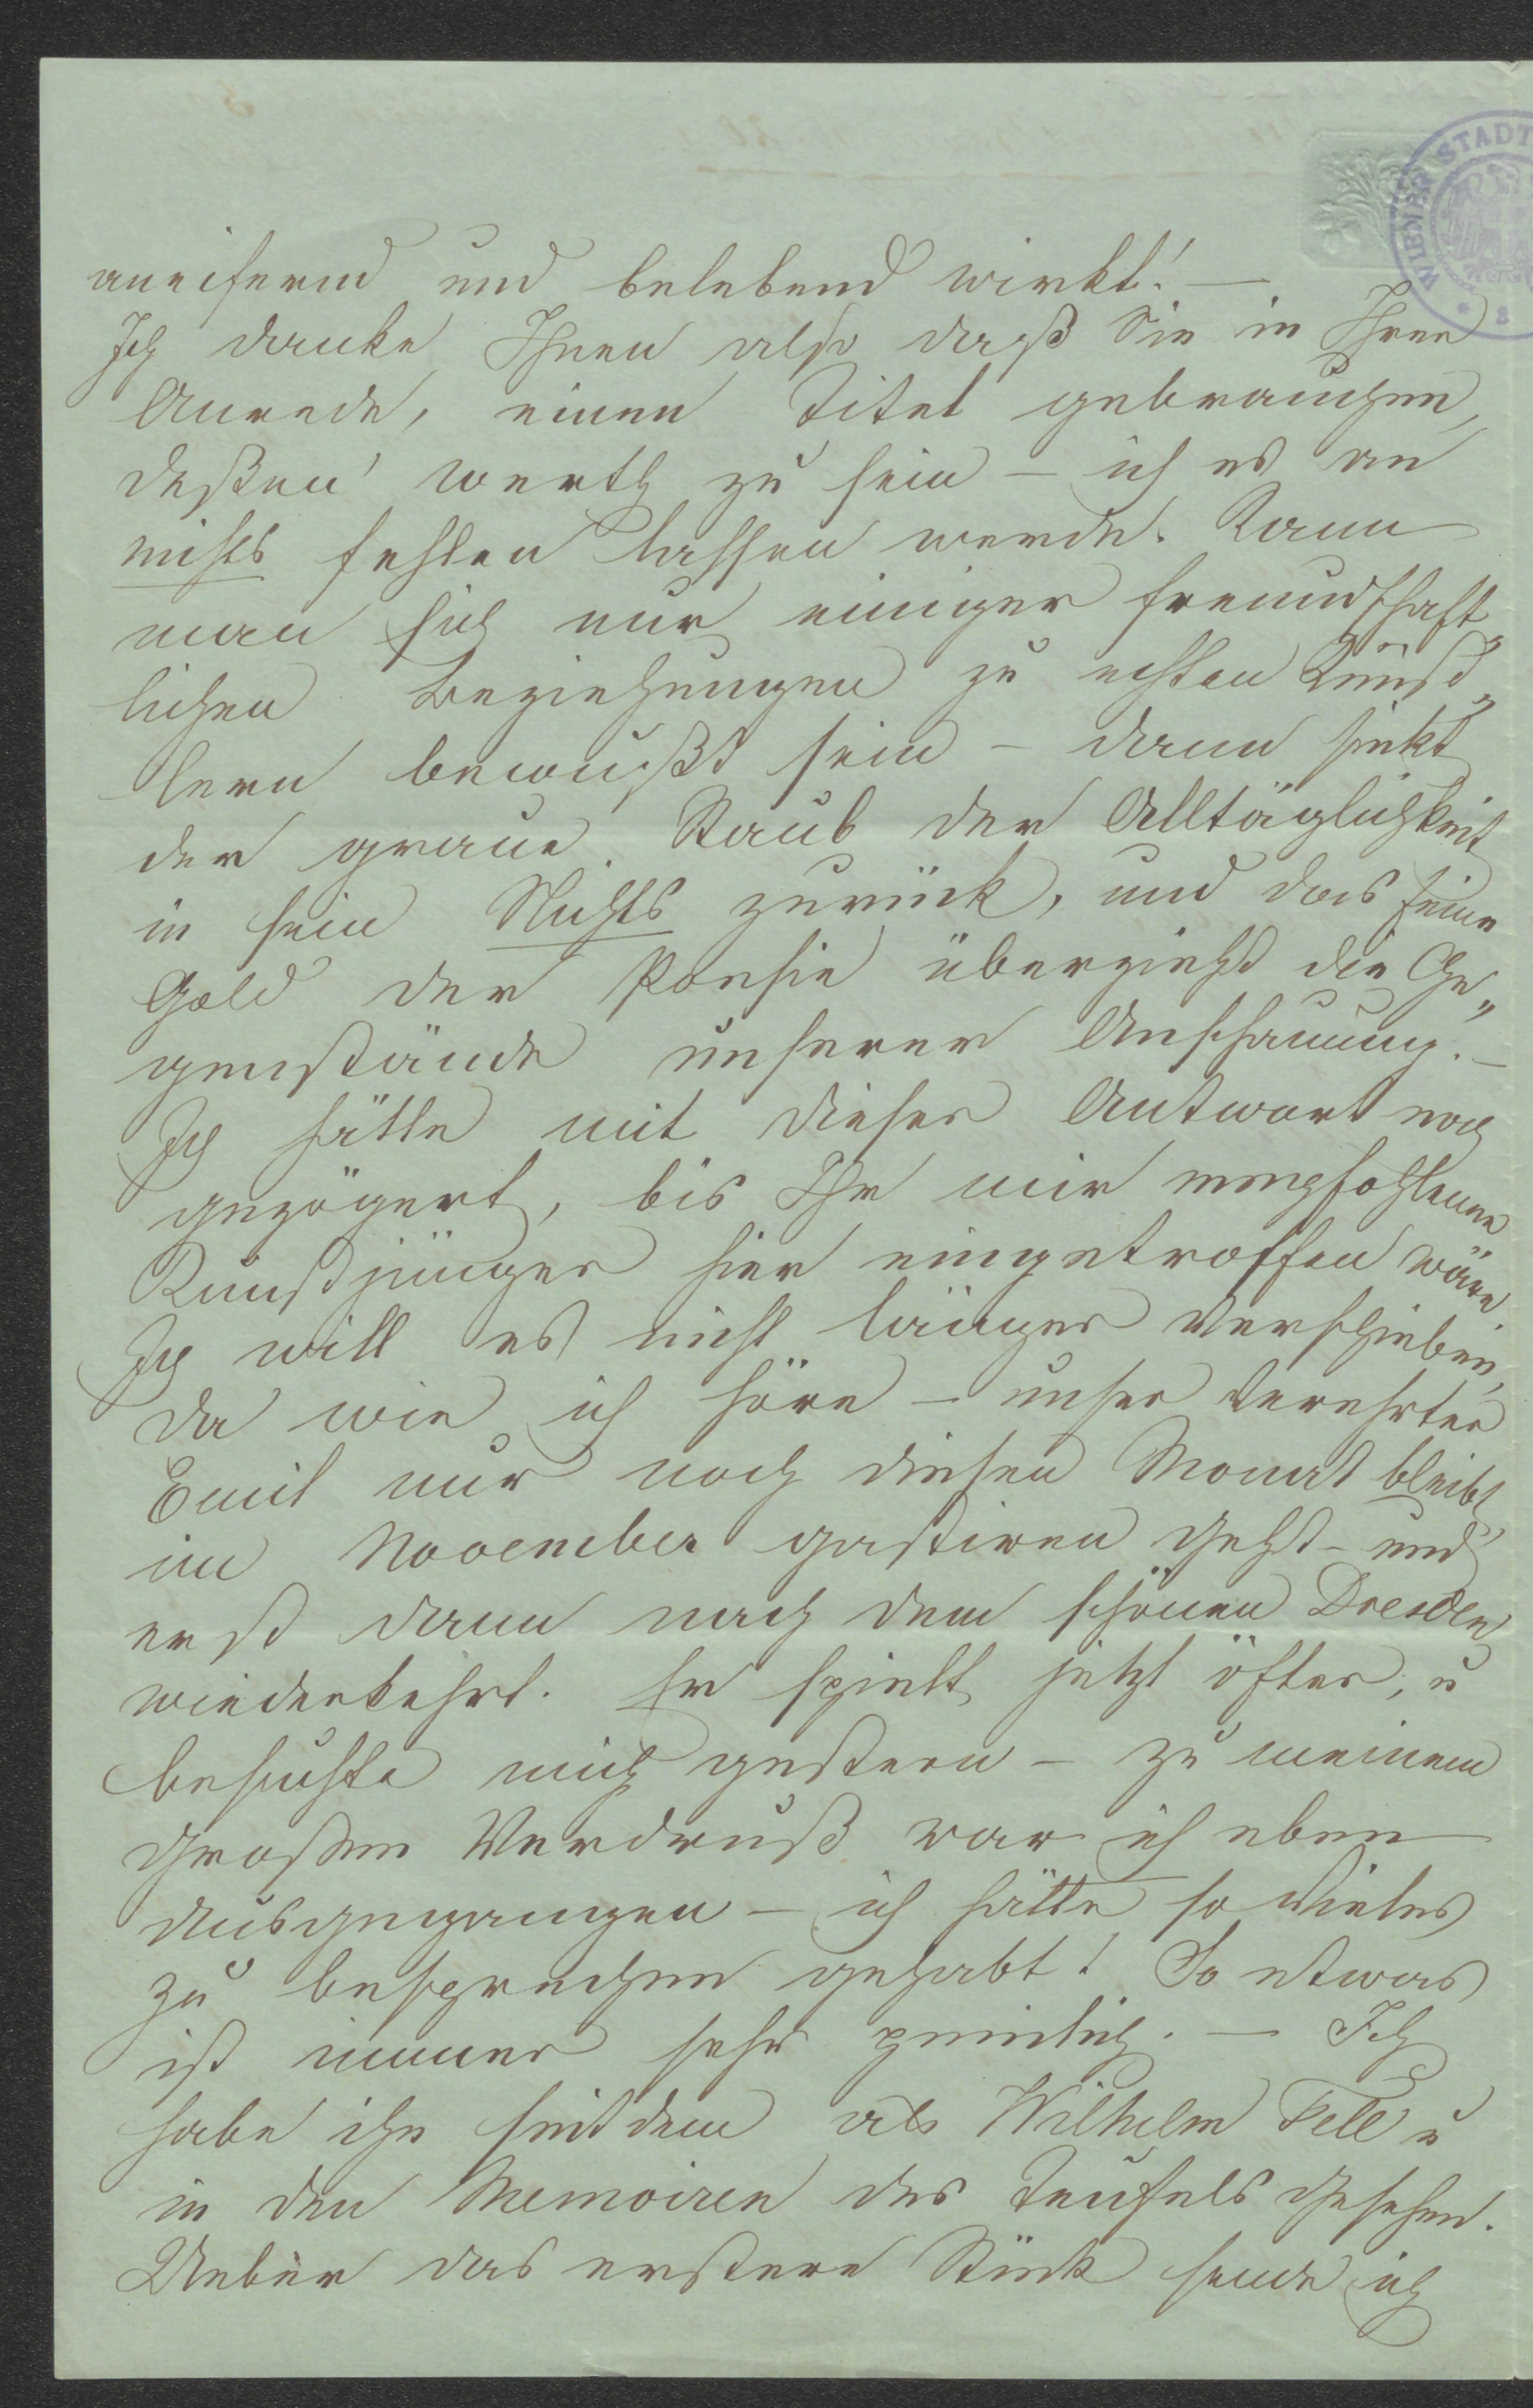 WIENER STADT
aneifernd und belebend wirkt! —
Ich danke Ihnen also daß Sie in Ihrer
Anrede, einen Titel gebrauchen,
deßen werth zu sein — ich es an
nichts fehlen lassen werde. Kann
man sich nur einiger freundschaft
lichen Beziehungen zu echten Künst„
lern bewußt sein — dann sinkt
der graue Staub der Alltäglichkeit
in sein Nichts zurück, und das feine
Gold der Poesie überzieht die Ge„
genstände unserer Anschauung. —
Ich hätte mit dieser Antwort noch
gezögert, bis Ihr mir empfohlener
Kunstjünger hier eingetroffen wäre.
Ich will es nicht länger verschieben,
da wie ich höre — unser verehrter
Emil nur noch diesen Monat bleibt,
im November gastiren geht — und
erst dann nach dem schönen Dresden
wiederkehrt. Er spielt jetzt öfter, u
besuchte mich gestern — zu meinem
großen Verdruß war ich eben
ausgegangen — ich hätte so Vieles
zu besprechen gehabt! So etwas
ist immer sehr peinlich. — Ich
habe ihn seitdem als Wilhelm Tell u
in den Memoiren des Teufels gesehen.
Ueber das erstere Stück sende ich